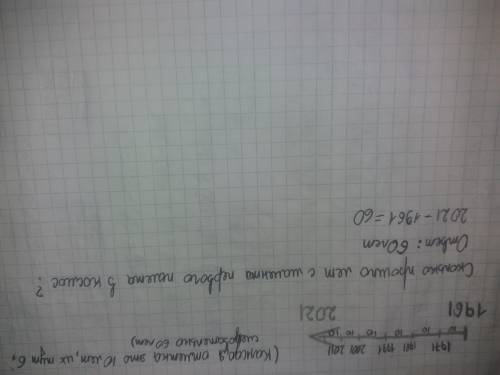 (Каждая отметка это 10 лет, их тут 6,
следовательно 60 лет)
10 10 10 10 10 10
1971 1981 1991 2001 2011
1961 2021
Сколько прошло лет с момента первого полета в космос?
Ответ: 60 лет
2021 - 1961 = 60